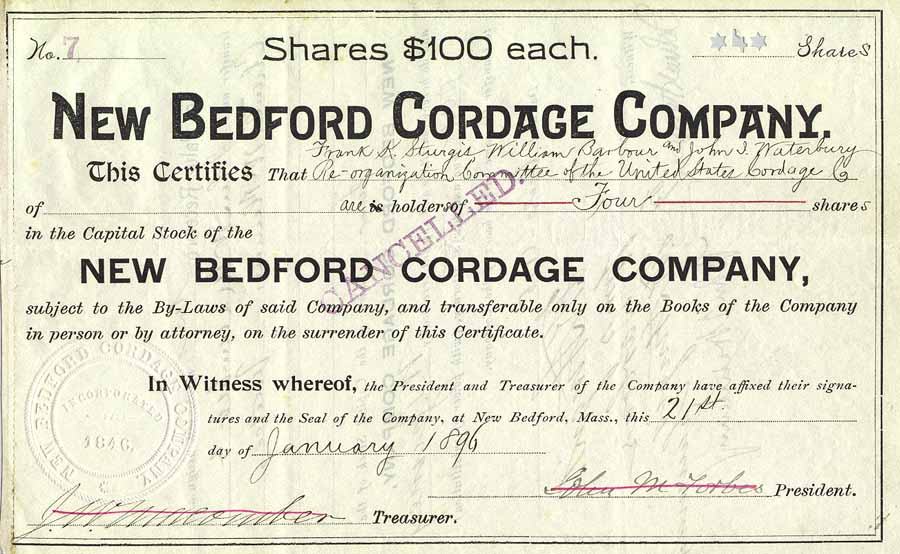 No. 7 Shares $100 each. *4* Shares
NEW BEDFORD CORDAGE COMPANY.
Frank K. Sturgis William Barbour and John I. Waterbury
This Certifies That Re-organization Committee of the United States Cordage Co
of are is holders of Four shares
in the Capital Stock of the
CANCELLED.
NEW BEDFORD CORDAGE COMPANY,
subject to the By-Laws of said Company, and transferable only on the Books of the Company
in person or by attorney, on the surrender of this Certificate.
NEW BEDFORD CORDAGE COMPANY.
INCORPORATED
1846.
In Witness whereof, the President and Treasurer of the Company have affixed their signa-
tures and the Seal of the Company, at New Bedford, Mass., this 21st.
day of January 1896
John M Forbes President.
Treasurer.